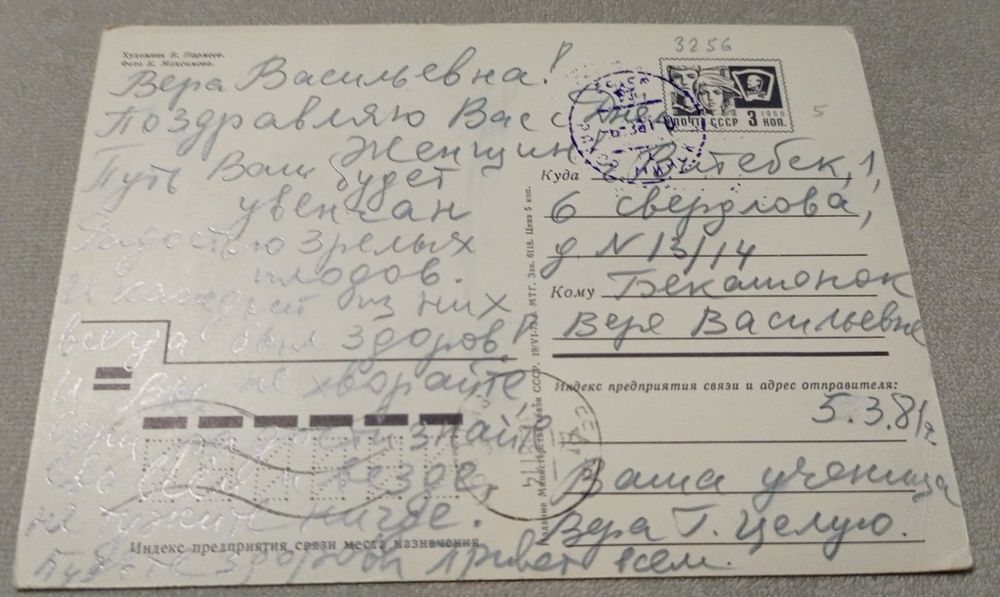 Художник К. Пармеев.
Фото Б. Максимова.
Вера Васильевна!
Поздравляю Вас с Днем
Женщин!
Путь Ваш будет
увенчан
Радостью зрелых
плодов.
И каждый из них
всегда был здоров!
и вы не хворайте
радости знайте
везде
не тужите нигде.
Будьте здоровы привет всем.
Индекс предприятия связи места назначения
Издание Министерства связи СССР. 19/VI-73 г. МТГ. Зак. 6118. Цена 5 коп.
3256
5
ПОЧТА СССР 3 КОП.
1966
Куда Витебск, 1,
6 свердлова,
д. N 13/14
Кому Бекаменок
Вере Васильевне
Индекс предприятия связи и адрес отправителя:
5.3.81г
Ваша ученица
Вера Г. Целую.